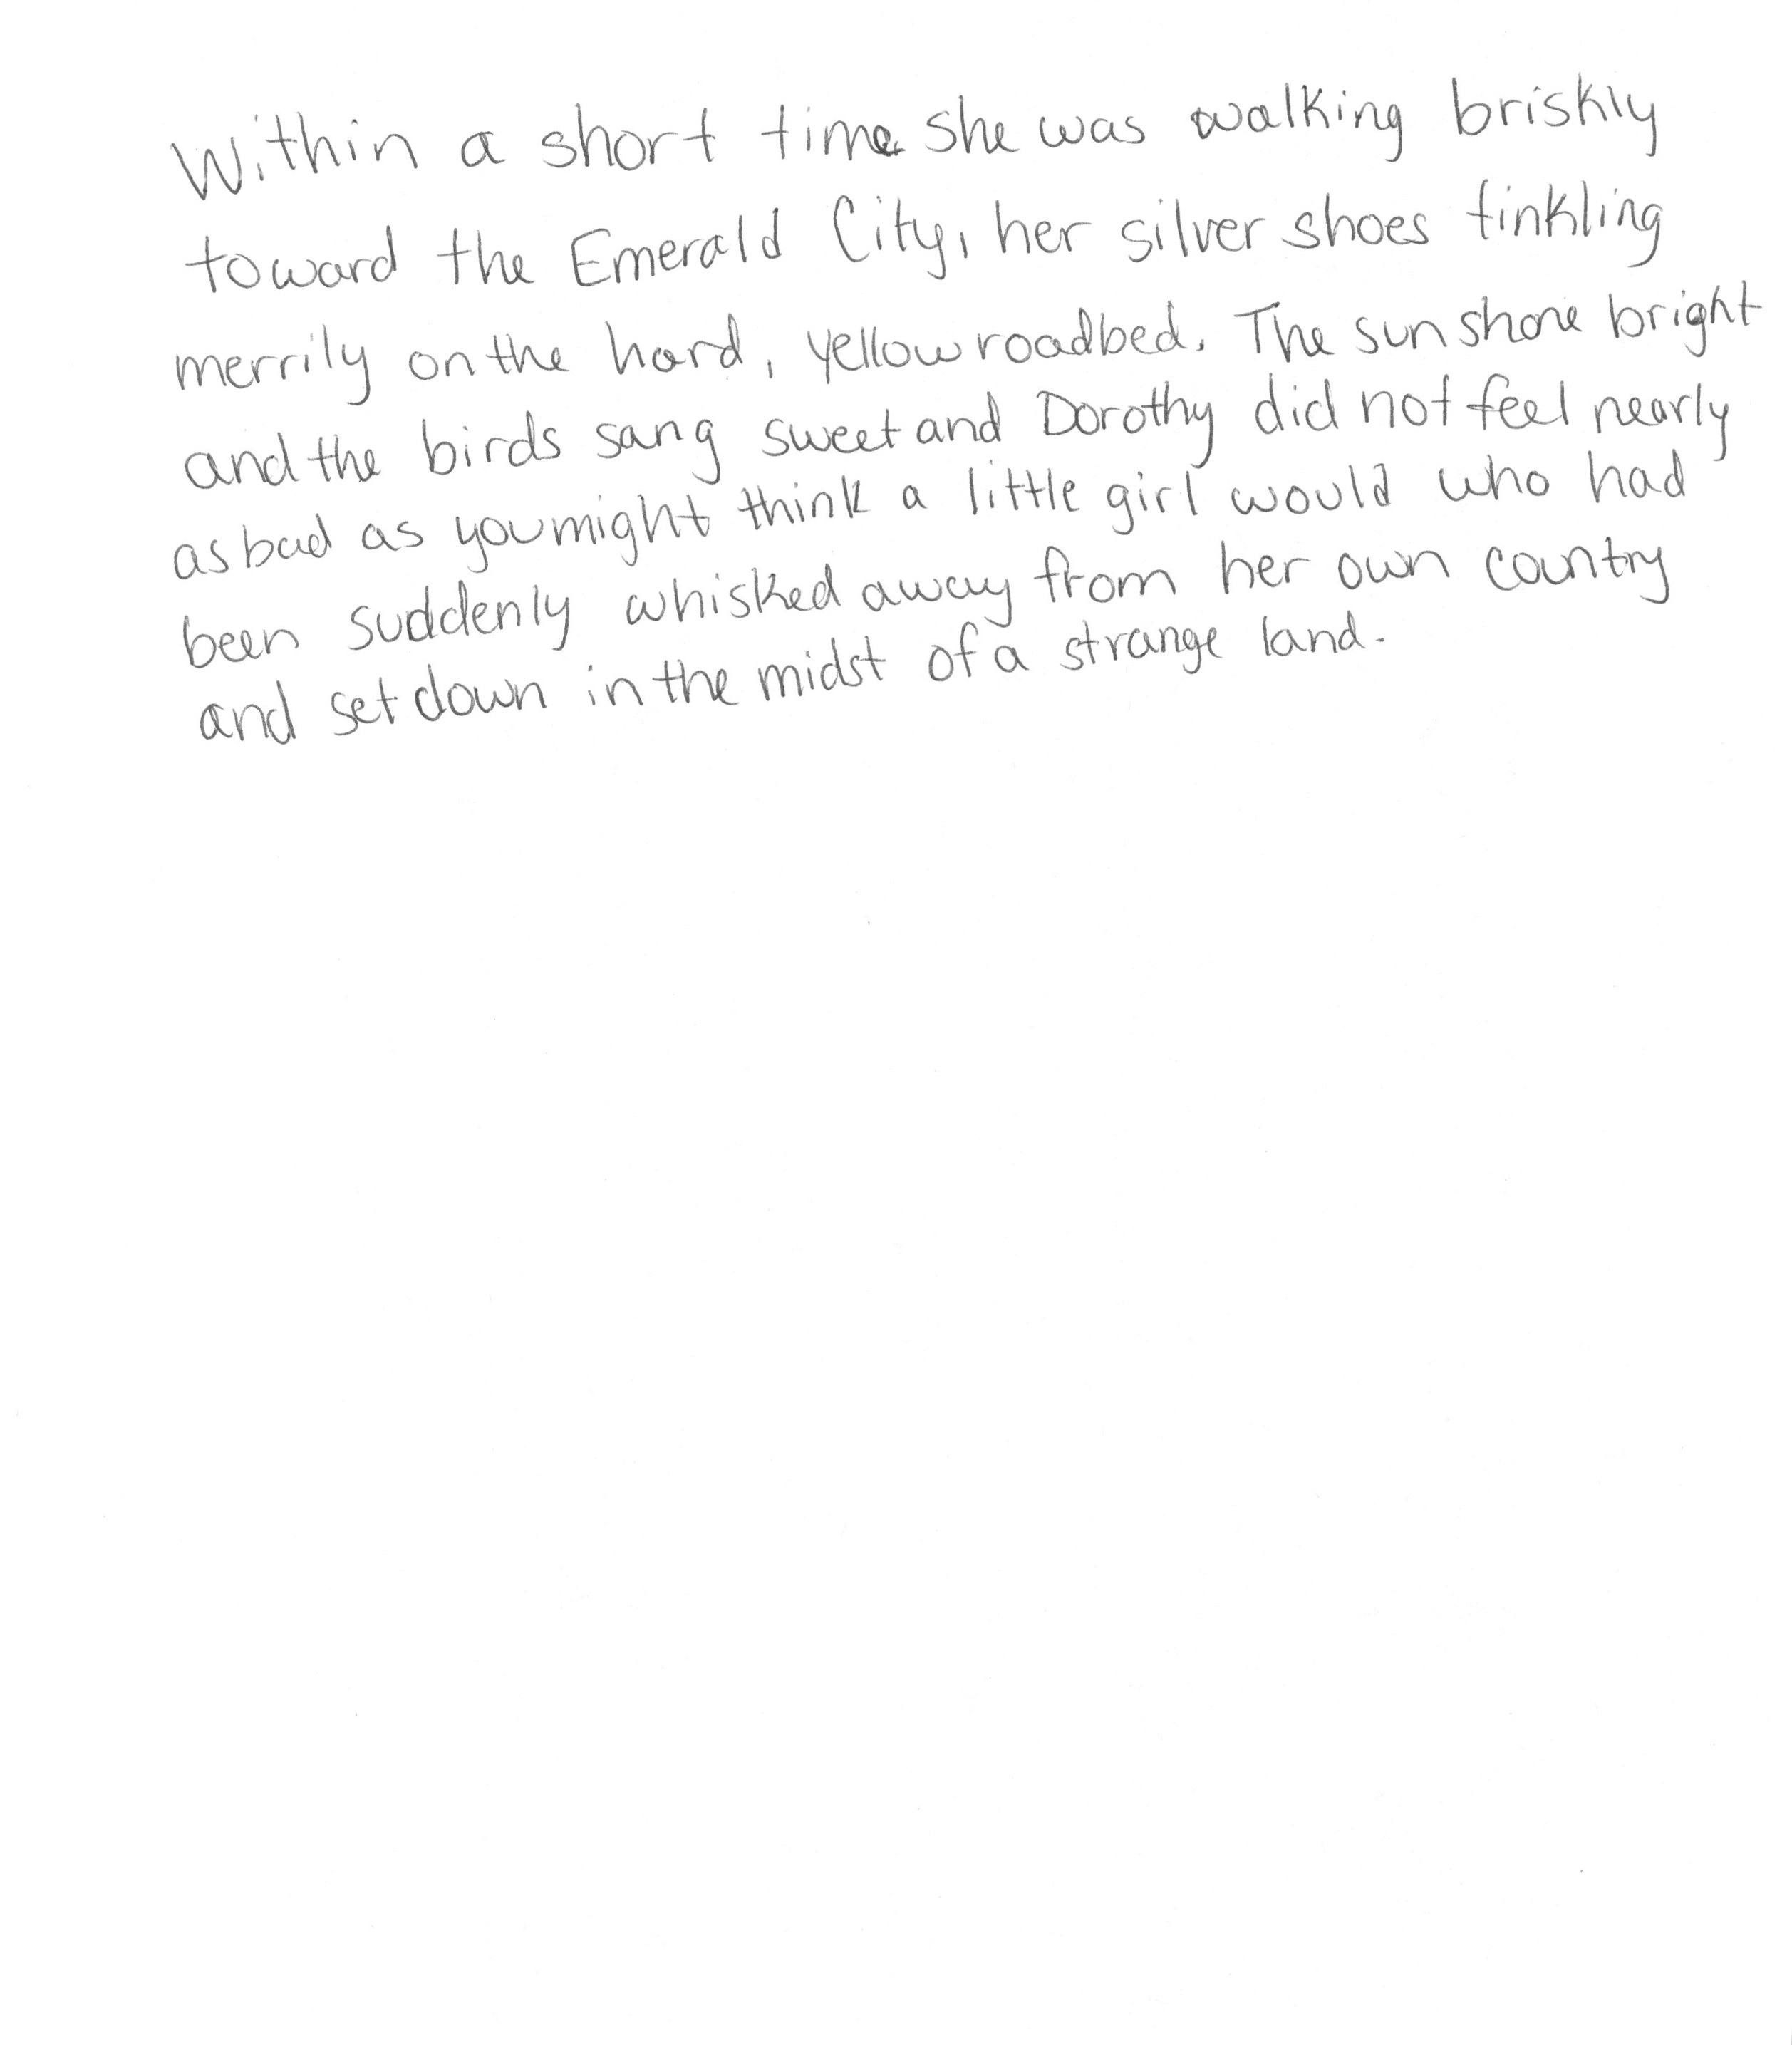 Within a short time she was walking briskly
toward the Emerald City, her silver shoes tinkling
merrily on the hard, yellow roadbed. The sun shone bright
and the birds sang sweet and Dorothy did not feel nearly
as bad as you might think a little girl would who had
been suddenly whisked away from her own country
and set down in the midst of a strange land.